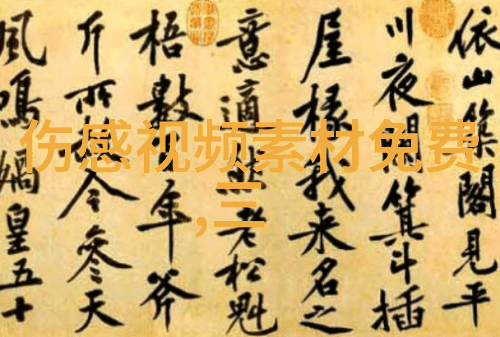 伤感视频素材免费
,三
依山築閣見平
川夜闌箕斗插
屋椽我来名之
意適然老松魁
梧數年斧
斤所今參天
風鳴媧皇五十